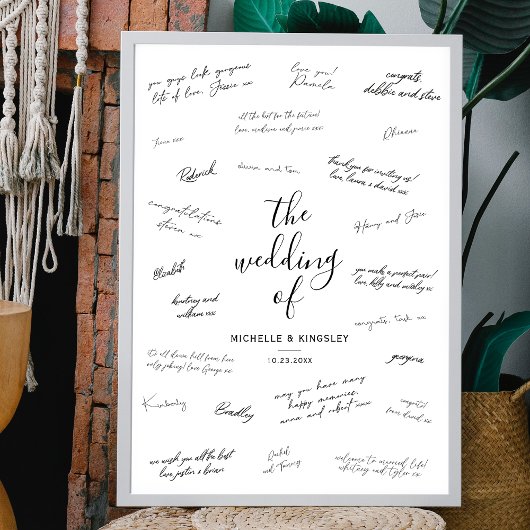 you guys look gorgeous
lots of love, Jessie xo
love you!
Pamela
congrats,
debbie and steve
all the best for the future!
love, madison and josie xxx
Rhianna
Roderick
and tom
thank you for inviting us!
love, laura & david xx
congratulations
steven xx
the
wedding
of
Harry and Josie
Elizabeth
kourtney and
william xxx
you make a perfect pair!
love, kelly and marley xx
congrats, tash xx
MICHELLE & KINGSLEY
10.23.20XX
it's all down hill from here
only joking! love George xx
georgina
may you have many
happy memories,
anna and robert xxx
Kimberley
Bradley
congrats!
from david xx
we wish you all the best
love justin & brian
Rachel
and Tammy
welcome to married life!
whitney and tyler xx